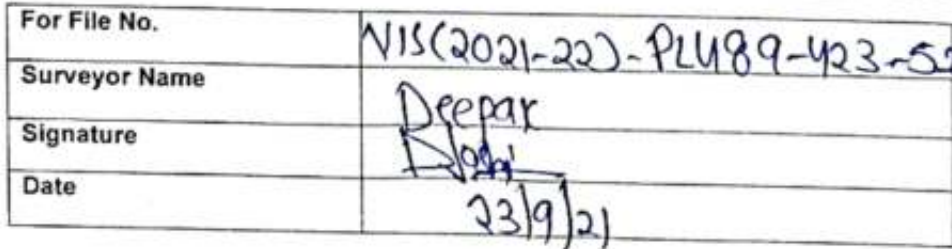 For File No. VIS(2021-22)-PL489-423-5
Surveyor Name Deepak
Signature Joshi
Date 23/9/21